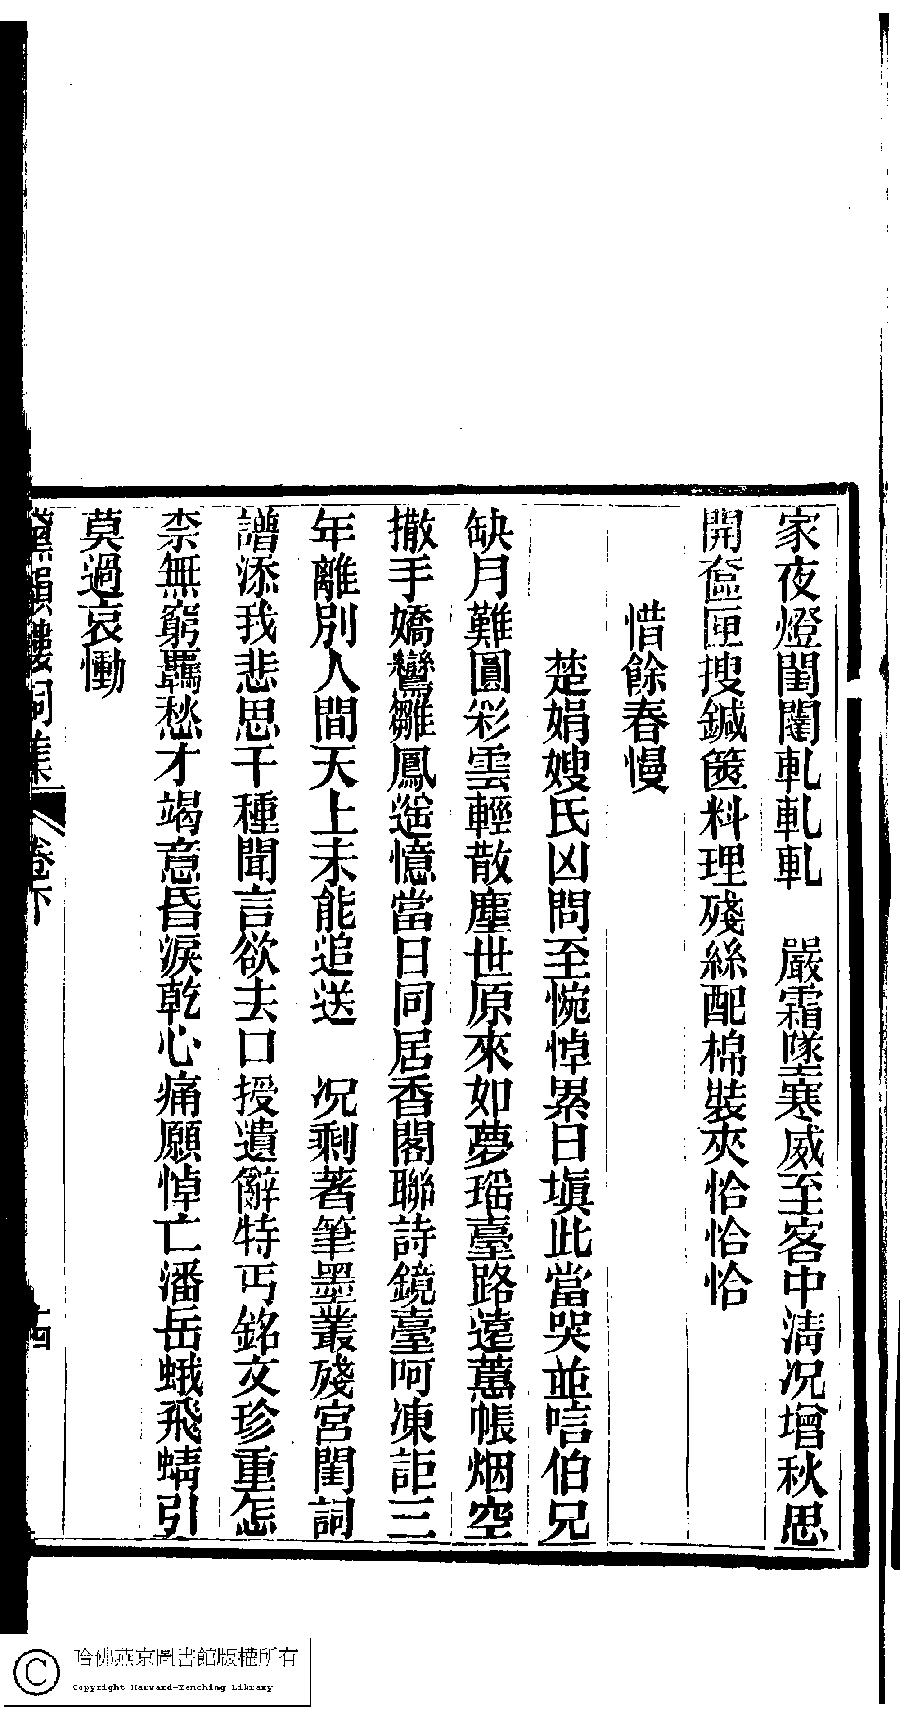 家夜燈閨闥軋軋軋　嚴霜墜寒威至客中淸况增秋思
開奩匣搜鍼篋料理殘絲配棉裝夾恰恰恰
惜餘春慢
楚娟嫂氏凶問至惋悼累日塡此當哭並唁伯兄
缺月難圓彩雲輕散塵世原來如夢瑶臺路遠蕙帳烟空
撒手嬌鸞雛鳳遙憶當日同居香閣聯詩鏡臺呵凍詎三
年離別人間天上未能追送　况剩著筆墨叢殘宮閨詞
譜添我悲思千種聞言欲去口授遺辭特丐銘文珍重怎
柰無窮羈愁才竭意昏淚乾心痛願悼亡潘岳蛾飛蜻引
莫過哀慟
黛韻樓詞集　卷下　十四
哈佛燕京圖書館版權所有
Copyright Harvard-Yenching Library